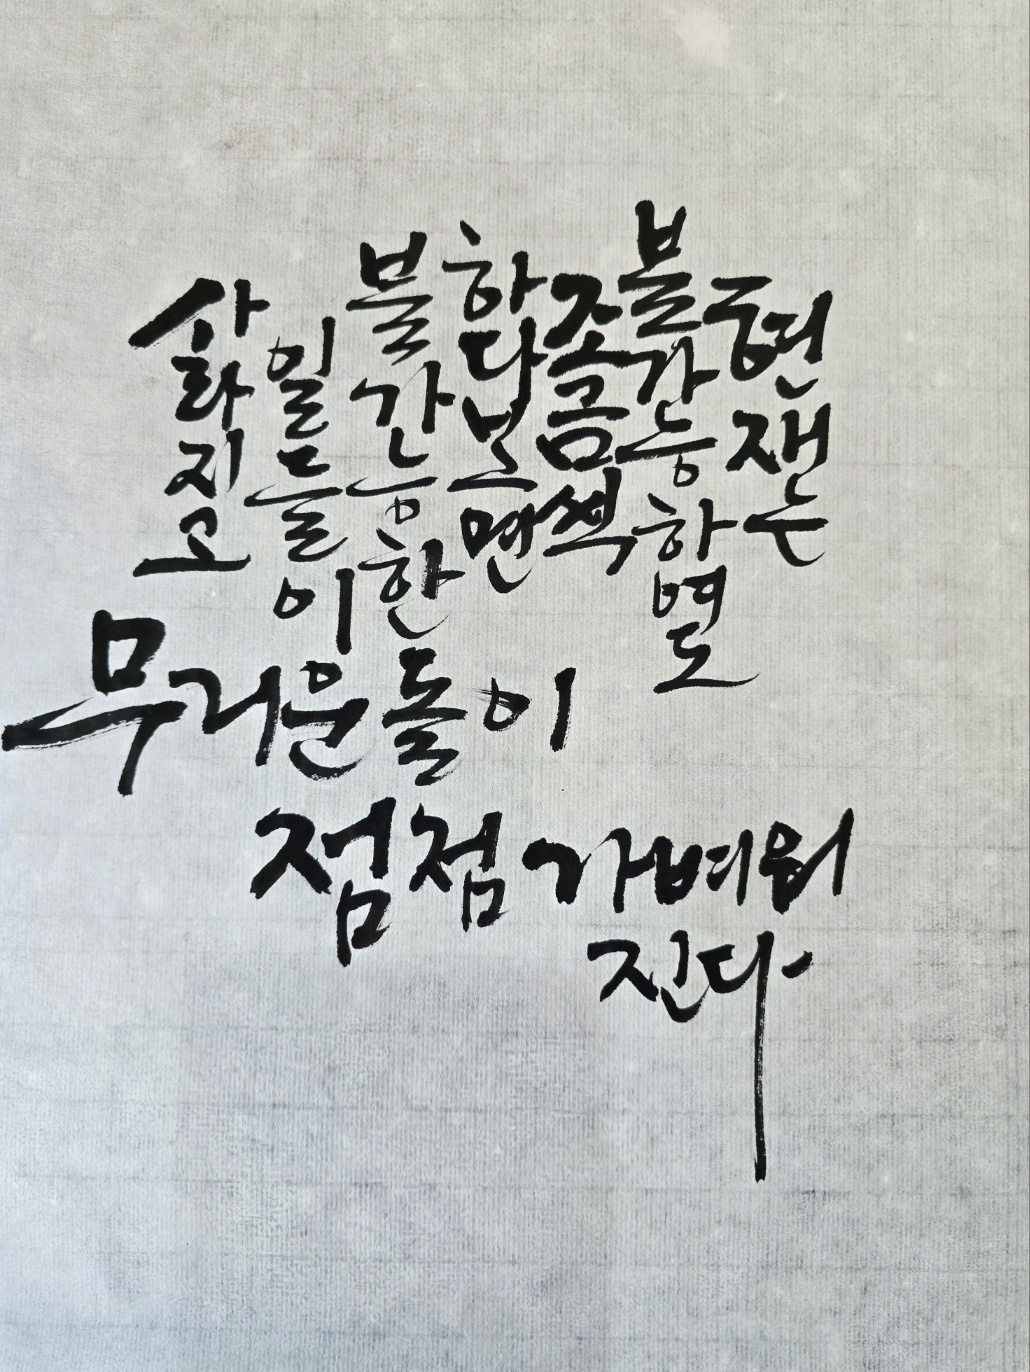 현재는
불가능하여도
조금씩
하다보면
불가능한
일들이
사라지고
무거운 돌이
점점 가벼워
진다